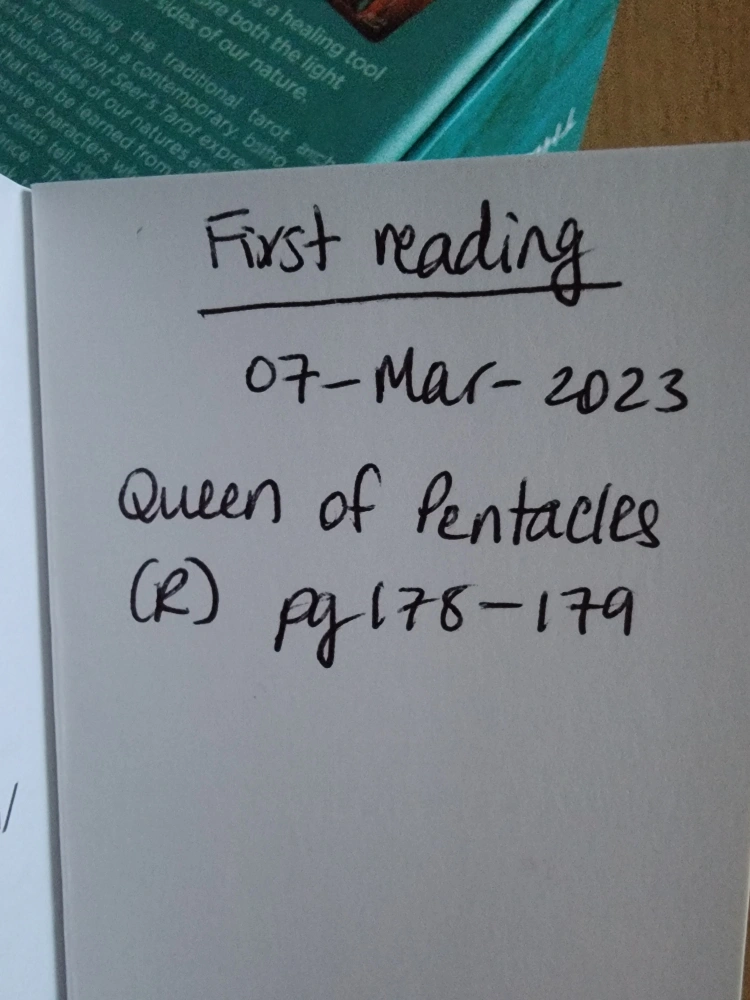 s a healing tool
re both the light
sides of our nature.
the traditional tarot
symbols in a contemporary, boho
style, The Light Seer's Tarot expre
hadow sides of our natures a
that can be learned from
ssive characters w
cards tell
First reading
07-Mar-2023
Queen of Pentacles
(R) pg 178-179